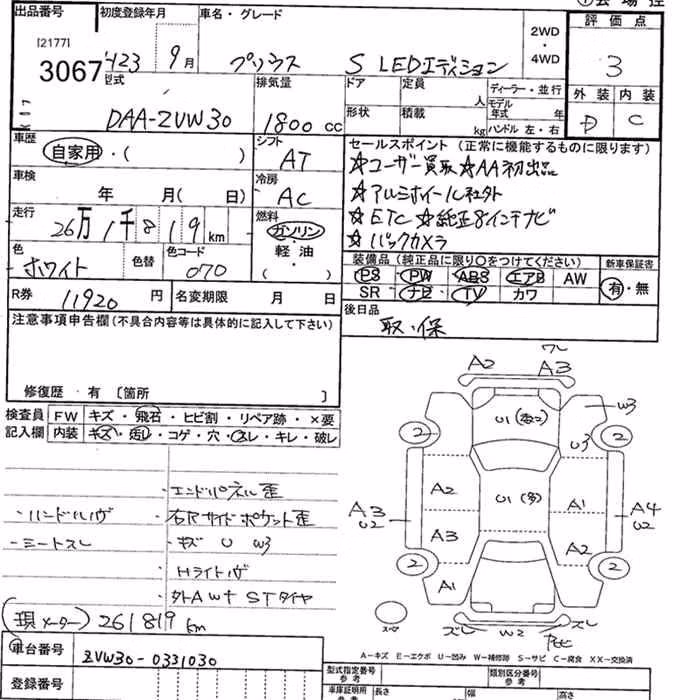 出品番号 初度登録年月 車名・グレード 2WD・4WD 評価点
[2177]
3067 H23 9月 プリウス S LEDエディション 3
型式 排気量 ドア 定員 人 ディーラー・並行 外装 内装
DAA-ZVW30 1800 cc 形状 積載 kg モデル年式 年 ハンドル 左・右 D C
車歴 自家用・( ) シフト AT
セールスポイント (正常に機能するものに限ります)
☆ユーザー買取 ☆AA初出品
☆アルミホイール社外
☆ETC ☆純正8インチナビ
☆バックカメラ
車検 年 月( 日) 冷房 AC
走行 26万1千819km 燃料 ガソリン・軽油・( )
色 ホワイト 色替 色コード 070
装備品 (純正品に限り○をつけてください) 新車保証書
PS PW ABS エアB AW 有・無
SR ナビ TV カワ
R券 11920 円 名変期限 月 日
後日品 取・保
注意事項申告欄 (不具合内容等は具体的に記入して下さい)
修復歴・有 〔箇所 〕
検査員記入欄 FW キズ・飛石・ヒビ割・リペア跡・×要
内装 キズ・汚レ・コゲ・穴・スレ・キレ・破レ
・エンドパネル歪
・ハンドルキズ ・右Rサイドポケット歪
・シートスレ ・キズ U W3
・Hライトキズ
・外AW+STタイヤ
(現メーター) 261819 km
車台番号 ZVW30-0331030
登録番号
ワレ
A2 A3
U1 W3
2 U3 2
A2 U1(多) A1
A3 U2 A4 U2
A3 A2
2 2
A1
スレ W2 スレ
A-キズ E-エクボ U-凹み W-補修跡 S-サビ C-腐食 XX-交換済
型式指定番号 参考 類別区分番号 参考
車庫証明用 参考 長さ 幅 高さ